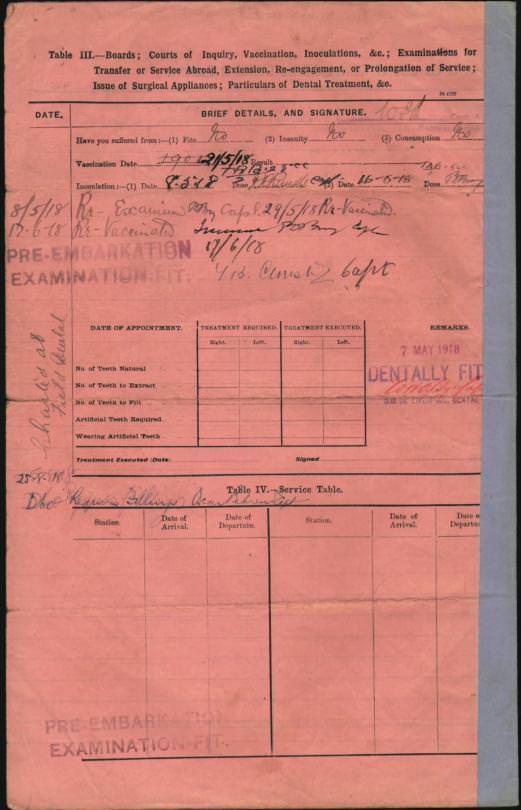 Table III.—Boards; Courts of Inquiry, Vaccination, Inoculations, &c.; Examinations for
Transfer or Service Abroad, Extension, Re-engagement, or Prolongation of Service;
Issue of Surgical Appliances; Particulars of Dental Treatment, &c.
DATE.
BRIEF DETAILS, AND SIGNATURE.
Have you suffered from:—(1) Fits No (2) Insanity No (3) Consumption No
Vaccination Date 1904 21/5/18 Result
Inoculation:—(1) Date 8.5.18 Dose (2) Date 26-5-18 Dose
8/5/18 Re-Examined Capt. 29/5/18 Re-Vaccinated.
17-6-18 Re-Vaccinated
17/6/18
PRE-EMBARKATION
EXAMINATION-FIT.
Capt
Charted at
Field Dental
DATE OF APPOINTMENT.
TREATMENT REQUIRED.
TREATMENT EXECUTED.
REMARKS.
Right. Left. Right. Left.
7 MAY 1918
DENTALLY FIT
No. of Teeth Natural
No. of Teeth to Extract
No. of Teeth to Fill
Artificial Teeth Required
Wearing Artificial Teeth
Treatment Executed (Date)
Signed
Table IV.—Service Table.
Station.
Date of
Arrival.
Date of
Departure.
Station.
Date of
Arrival.
Date of
PRE-EMBARKATION
EXAMINATION-FIT.